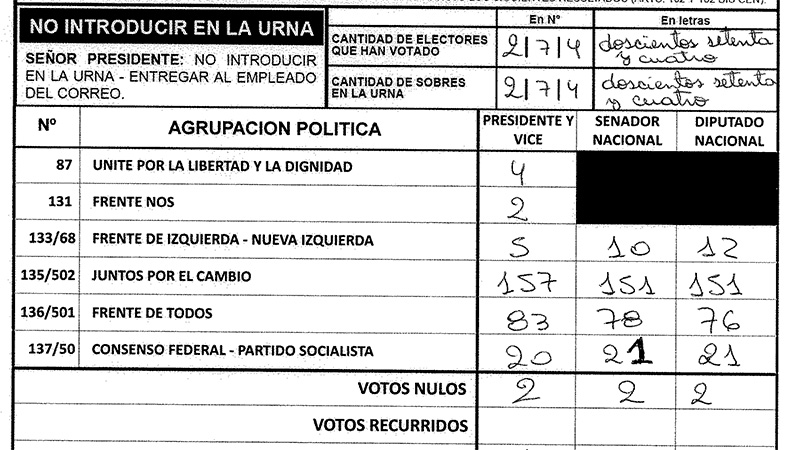 NO INTRODUCIR EN LA URNA
SEÑOR PRESIDENTE: NO INTRODUCIR
EN LA URNA - ENTREGAR AL EMPLEADO
DEL CORREO.
En Nº En letras
CANTIDAD DE ELECTORES
QUE HAN VOTADO
2/7/4 doscientos setenta
y cuatro
CANTIDAD DE SOBRES
EN LA URNA
2/7/4 doscientos setenta
y cuatro
Nº AGRUPACION POLITICA PRESIDENTE Y VICE SENADOR NACIONAL DIPUTADO NACIONAL
87 UNITE POR LA LIBERTAD Y LA DIGNIDAD 4
131 FRENTE NOS 2
133/68 FRENTE DE IZQUIERDA - NUEVA IZQUIERDA 5 10 12
135/502 JUNTOS POR EL CAMBIO 157 151 151
136/501 FRENTE DE TODOS 83 78 76
137/50 CONSENSO FEDERAL - PARTIDO SOCIALISTA 20 21 21
VOTOS NULOS 2 2 2
VOTOS RECURRIDOS